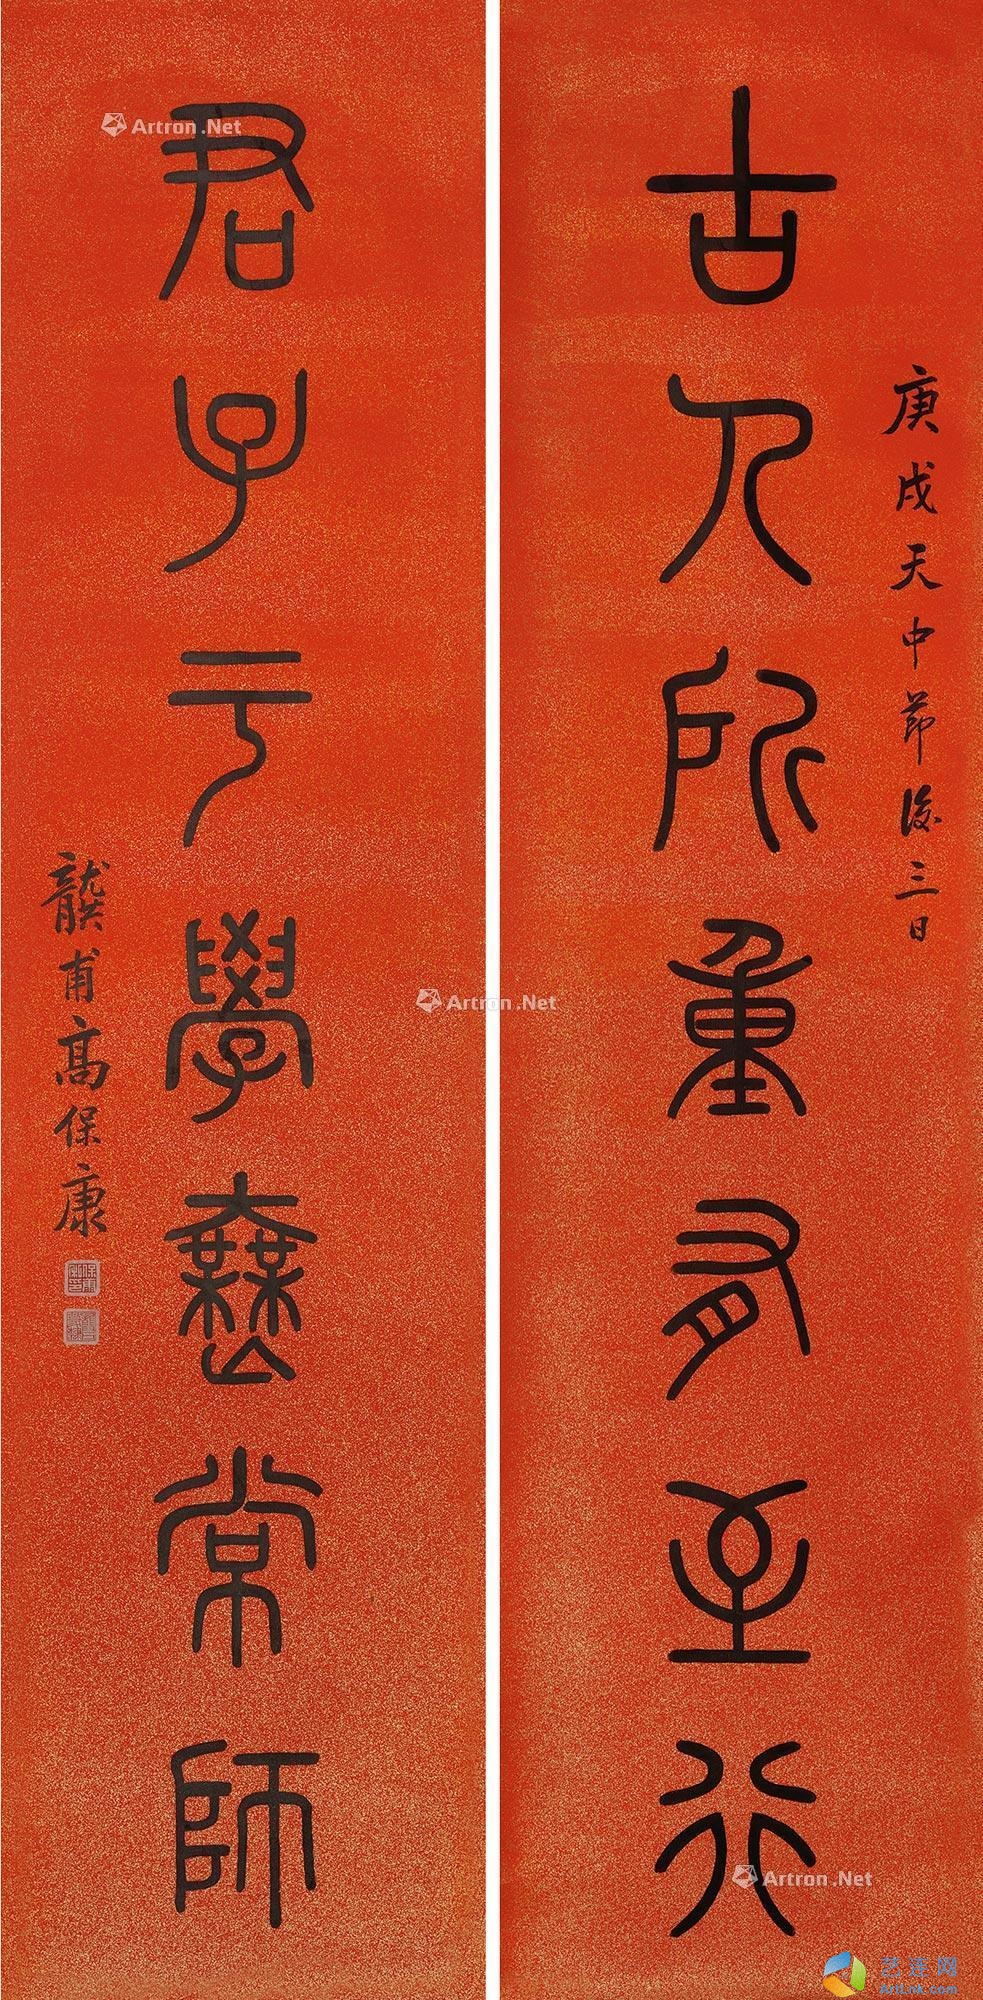 庚戌天中節後三日
古人所重有至行
君子于學無常師
龔甫高保康
Artron.Net
Artron.Net
Artron.Net
Artron.Net
ArtLnk.com